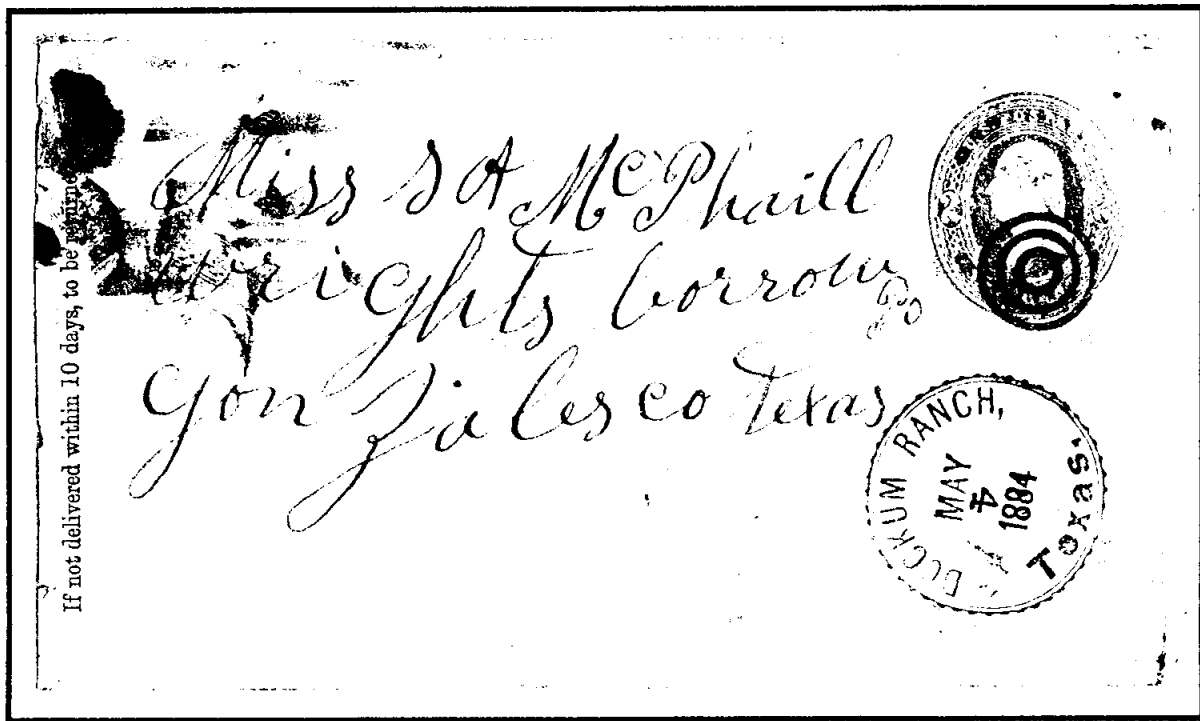 If not delivered within 10 days, to be
Miss S A McPhaill
Wrights borrow
Po
Gonzales co Texas
DOCKUM RANCH,
MAY
4
1884
Texas.